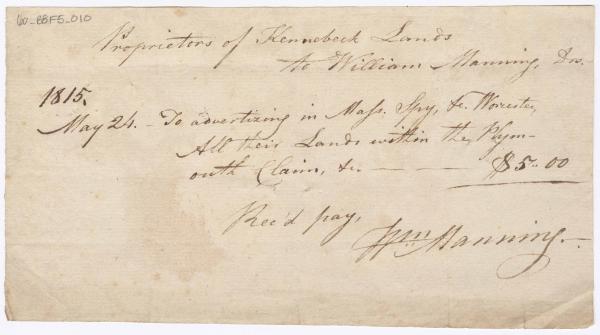 60_BBF5_010
Proprietors of Kennebeck Lands
to William Manning, Drs.
1815.
May 24. - To advertizing in Mass. Spy, &c. Worcester,
All their Lands within the Plym-
outh Claim, &c. — — $5..00
Rec'd pay,
Wm Manning.